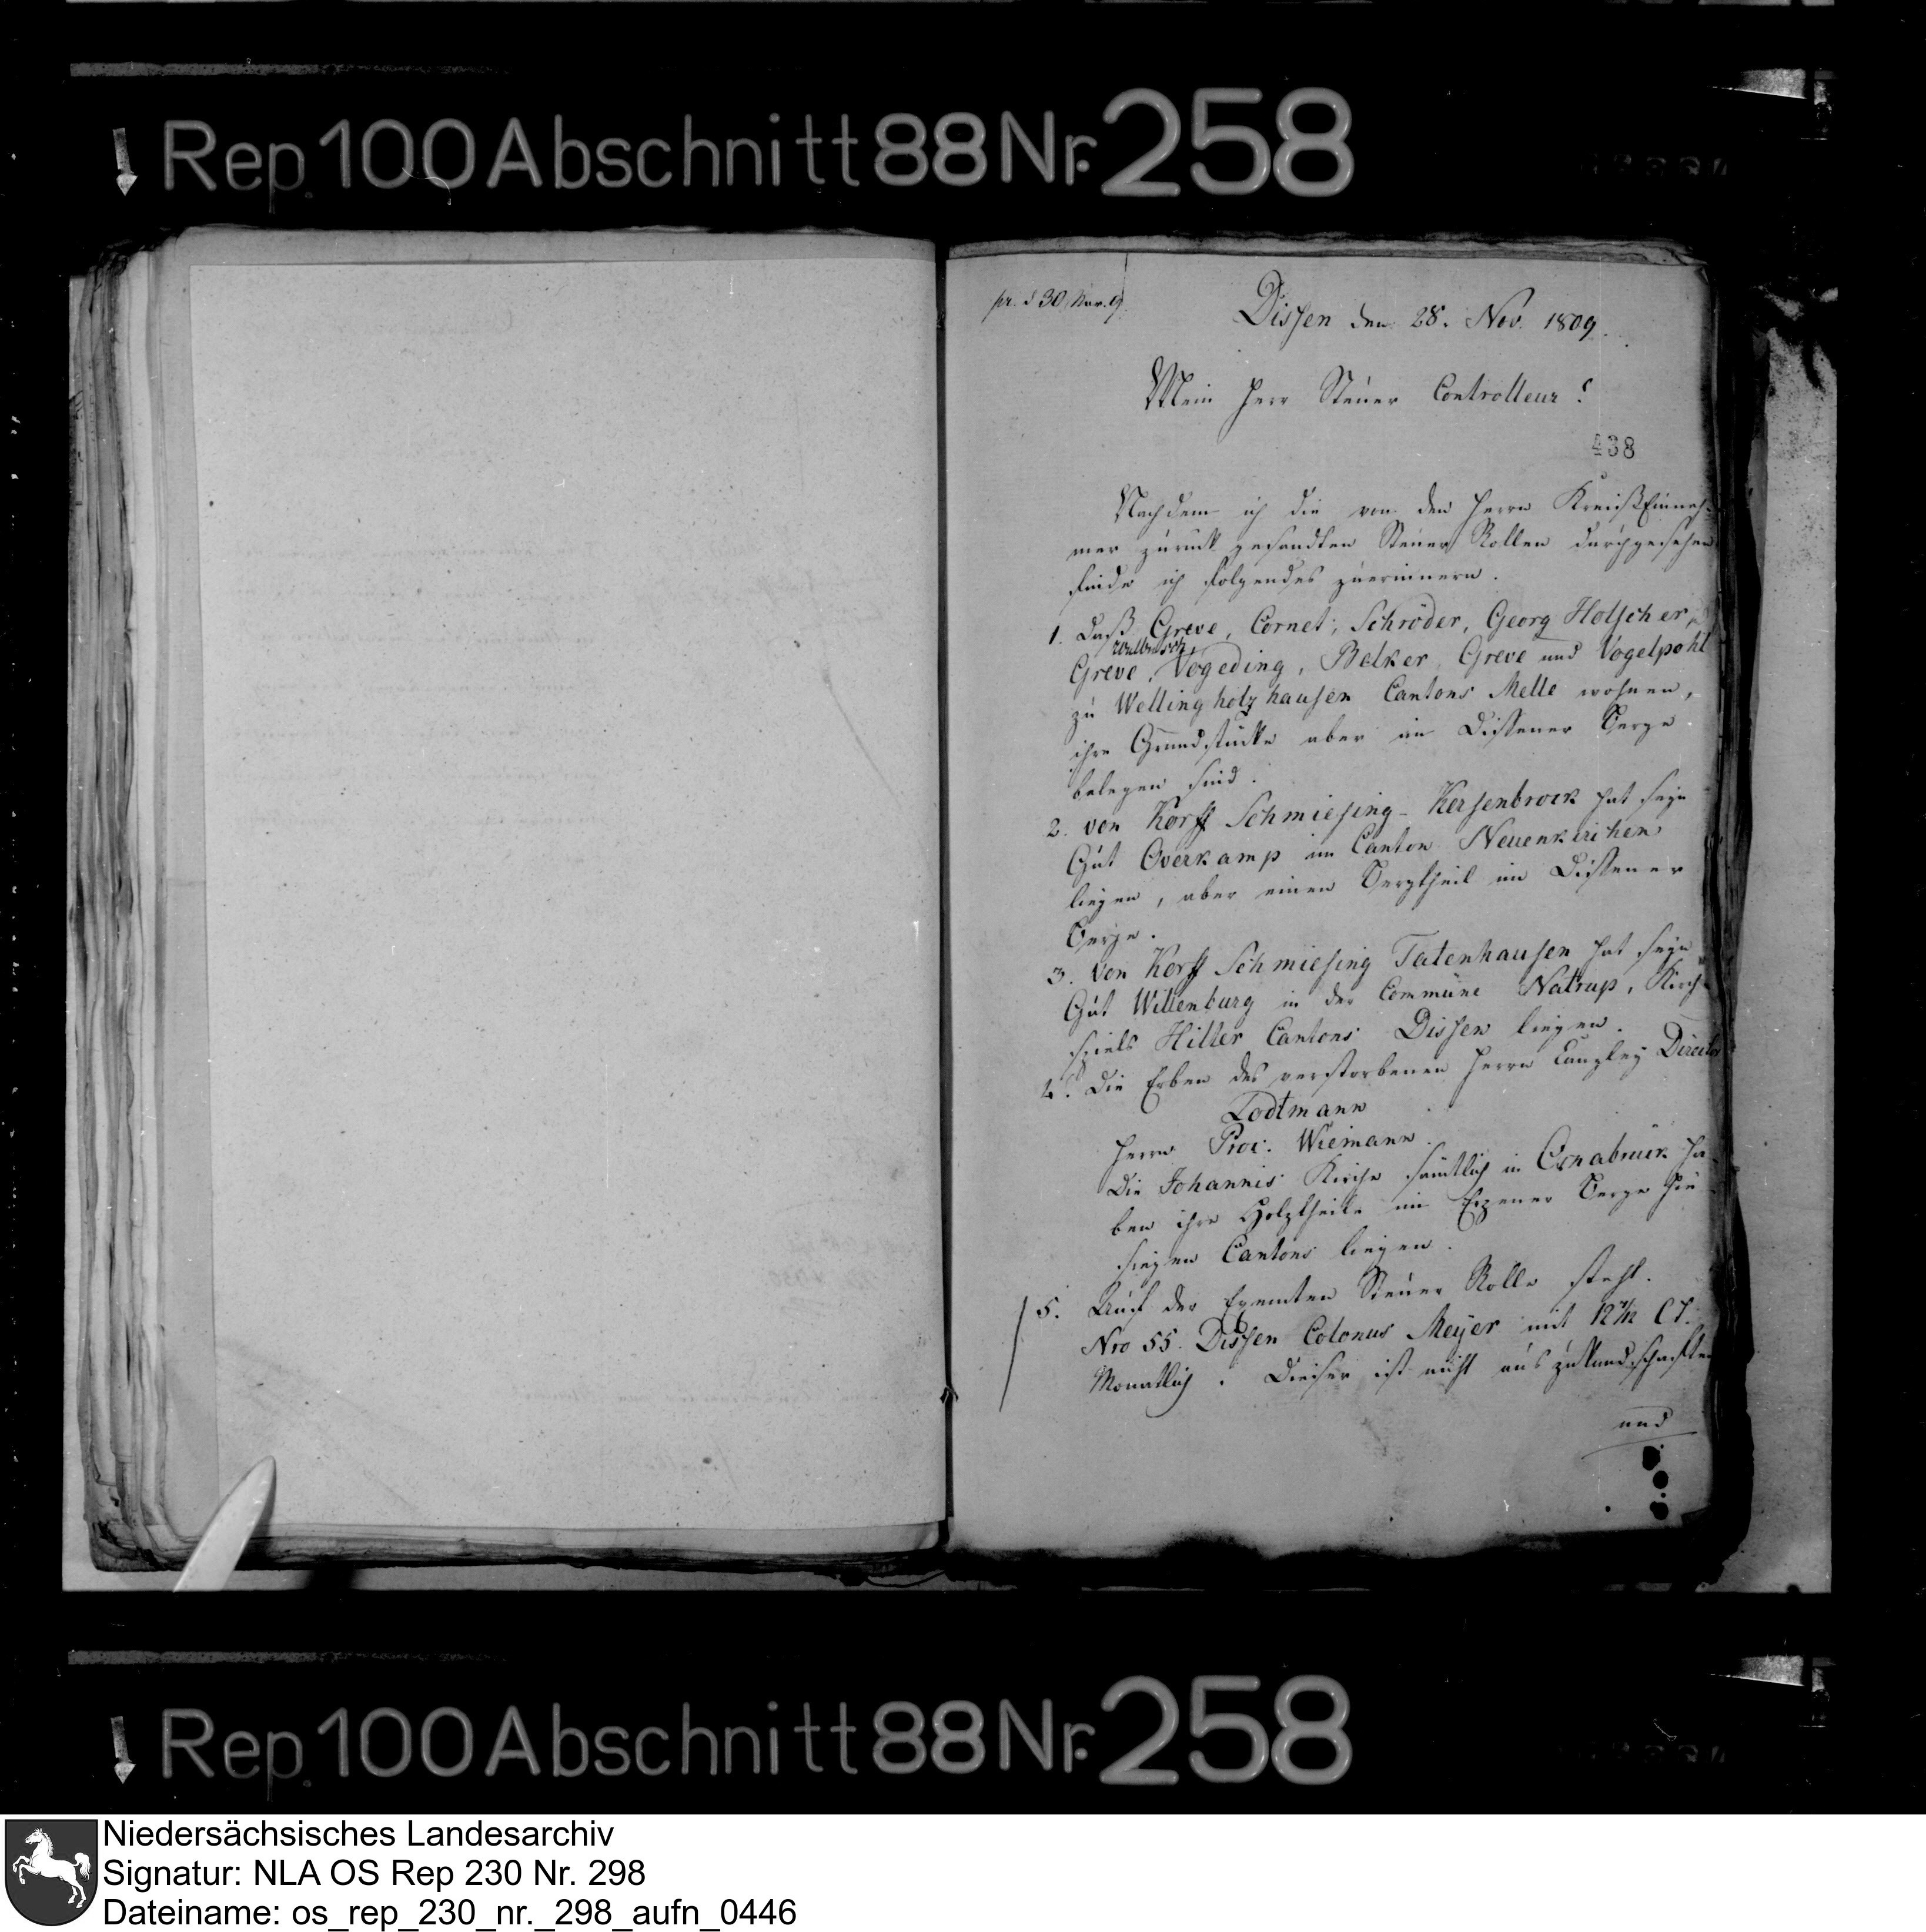 Rep. 100 Abschnitt 88 Nr. 258
pr. d 30 Nov. 9.
Dissen den 28. Nov. 1809.
Mein Herr Steuer Controlleur!
438
Nachdem ich die von den Herrn KreißEinneh-
mer zuruck gesandten Steuer Rollen durchgesehen
finde ich folgendes zuerinnern.
1. Daß Greve, Cornet, Schröder, Georg Holscher,
Wulbusch,
Greve, Vogeding, Belker, Greve und Vogelpohl
zu Wellingholzhausen Cantons Melle wohnen,
ihre Grundstücke aber im Dissener Berge
belegen sind.
2. von Korff Schmiesing-Kersenbrock hat sein
Gut Overkamp im Canton Neuenkirchen
liegen, aber einen Bergtheil im Dissener
Berge.
3. von Korff Schmiesing Tatenhausen hat sein
Gut Wittenburg in der Commüne Natrup, Kirch-
spiels Hilter Cantons Dissen liegen.
4. Die Erben des verstorbenen Herrn Canzley Director
Lodtmann
Herrn Proc. Wiemann.
Die Johannis Kirche sämtlich in Osnabrück ha-
ben ihre Holztheile im Erpener Berge hie-
sigen Cantons liegen.
5. Auf der Exemten Steuer Rolle steht.
Nro 55. Dissen Colonus Meyer mit 12 1/2 Ct.
Monatlich. Dieser ist nicht auszukundschaften
und
Rep. 100 Abschnitt 88 Nr. 258
Niedersächsisches Landesarchiv
Signatur: NLA OS Rep 230 Nr. 298
Dateiname: os_rep_230_nr._298_aufn_0446